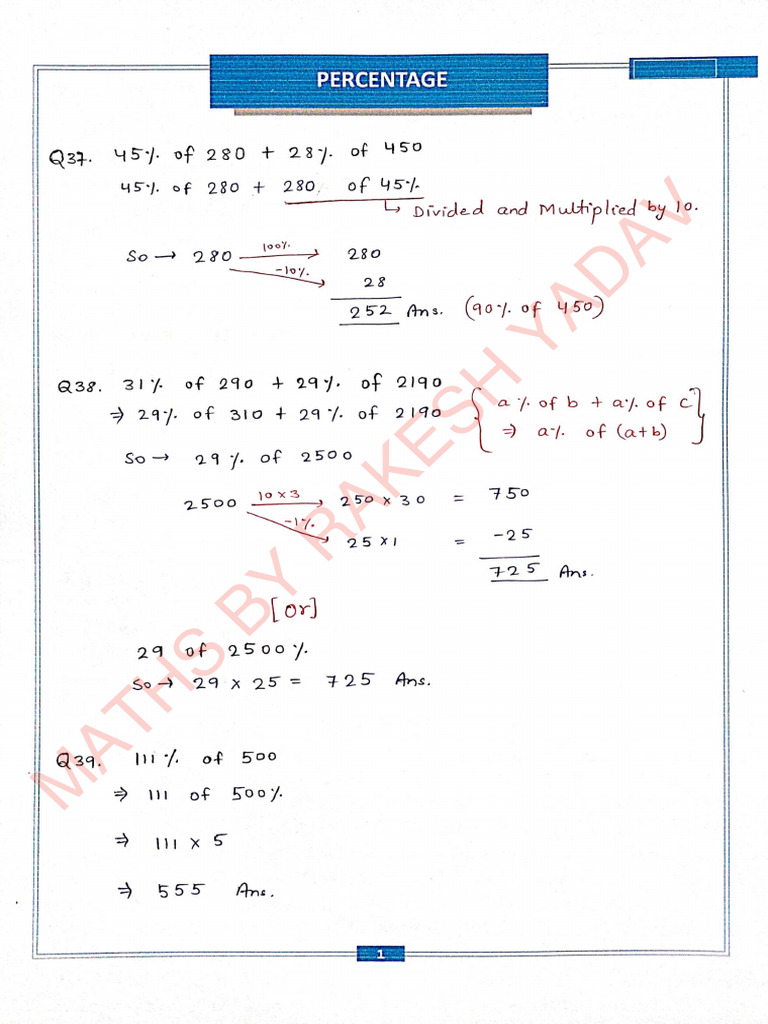 PERCENTAGE
Q37. 45% of 280 + 28% of 450
45% of 280 + 280 of 45%
↳ Divided and Multiplied by 10.
So → 280 100% → 280
-10% → 28
252 Ans. (90% of 450)
Q38. 31% of 290 + 29% of 2190
⇒ 29% of 310 + 29% of 2190
{ a% of b + a% of c
⇒ a% of (a+b) }
So → 29% of 2500
2500 10×3 → 250 × 30 = 750
-1% → 25 × 1 = -25
725 Ans.
[Or]
29 of 2500%
So → 29 × 25 = 725 Ans.
Q39. 111% of 500
⇒ 111 of 500%
⇒ 111 × 5
⇒ 555 Ans.
MATHS BY RAKESH YADAV
1